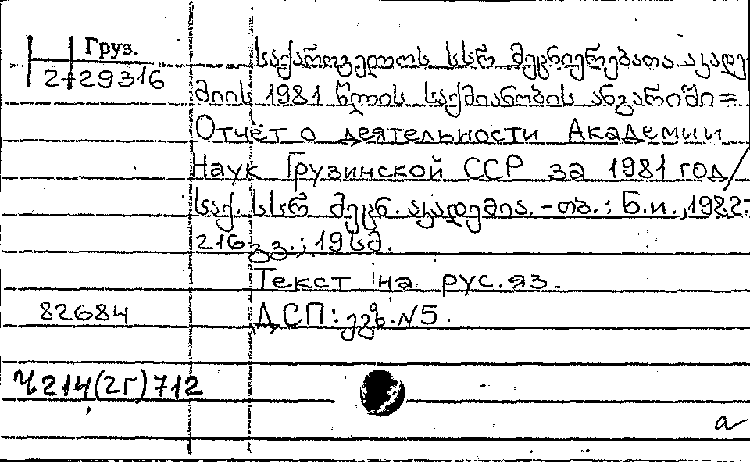 Груз.
2-29316
საქართველოს სსრ მეცნიერებათა აკადე
მიის 1981 წლის საქმიანობის ანგარიში =
Отчёт о деятельности Академии
Наук Грузинской ССР за 1981 год/
საქ. სსრ მეცნ. აკადემია. - თბ.: Б.и., 1982.-
216 გვ.; 19 სმ.
Текст на рус. яз.
82684
ДСП: ეგზ. №5.
Ч214(2Г)712
а